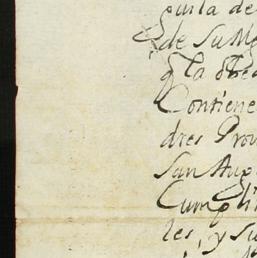 de Su Me
q la obe
Contiene
dres Prou
san Aug
Cumpli
les, y su